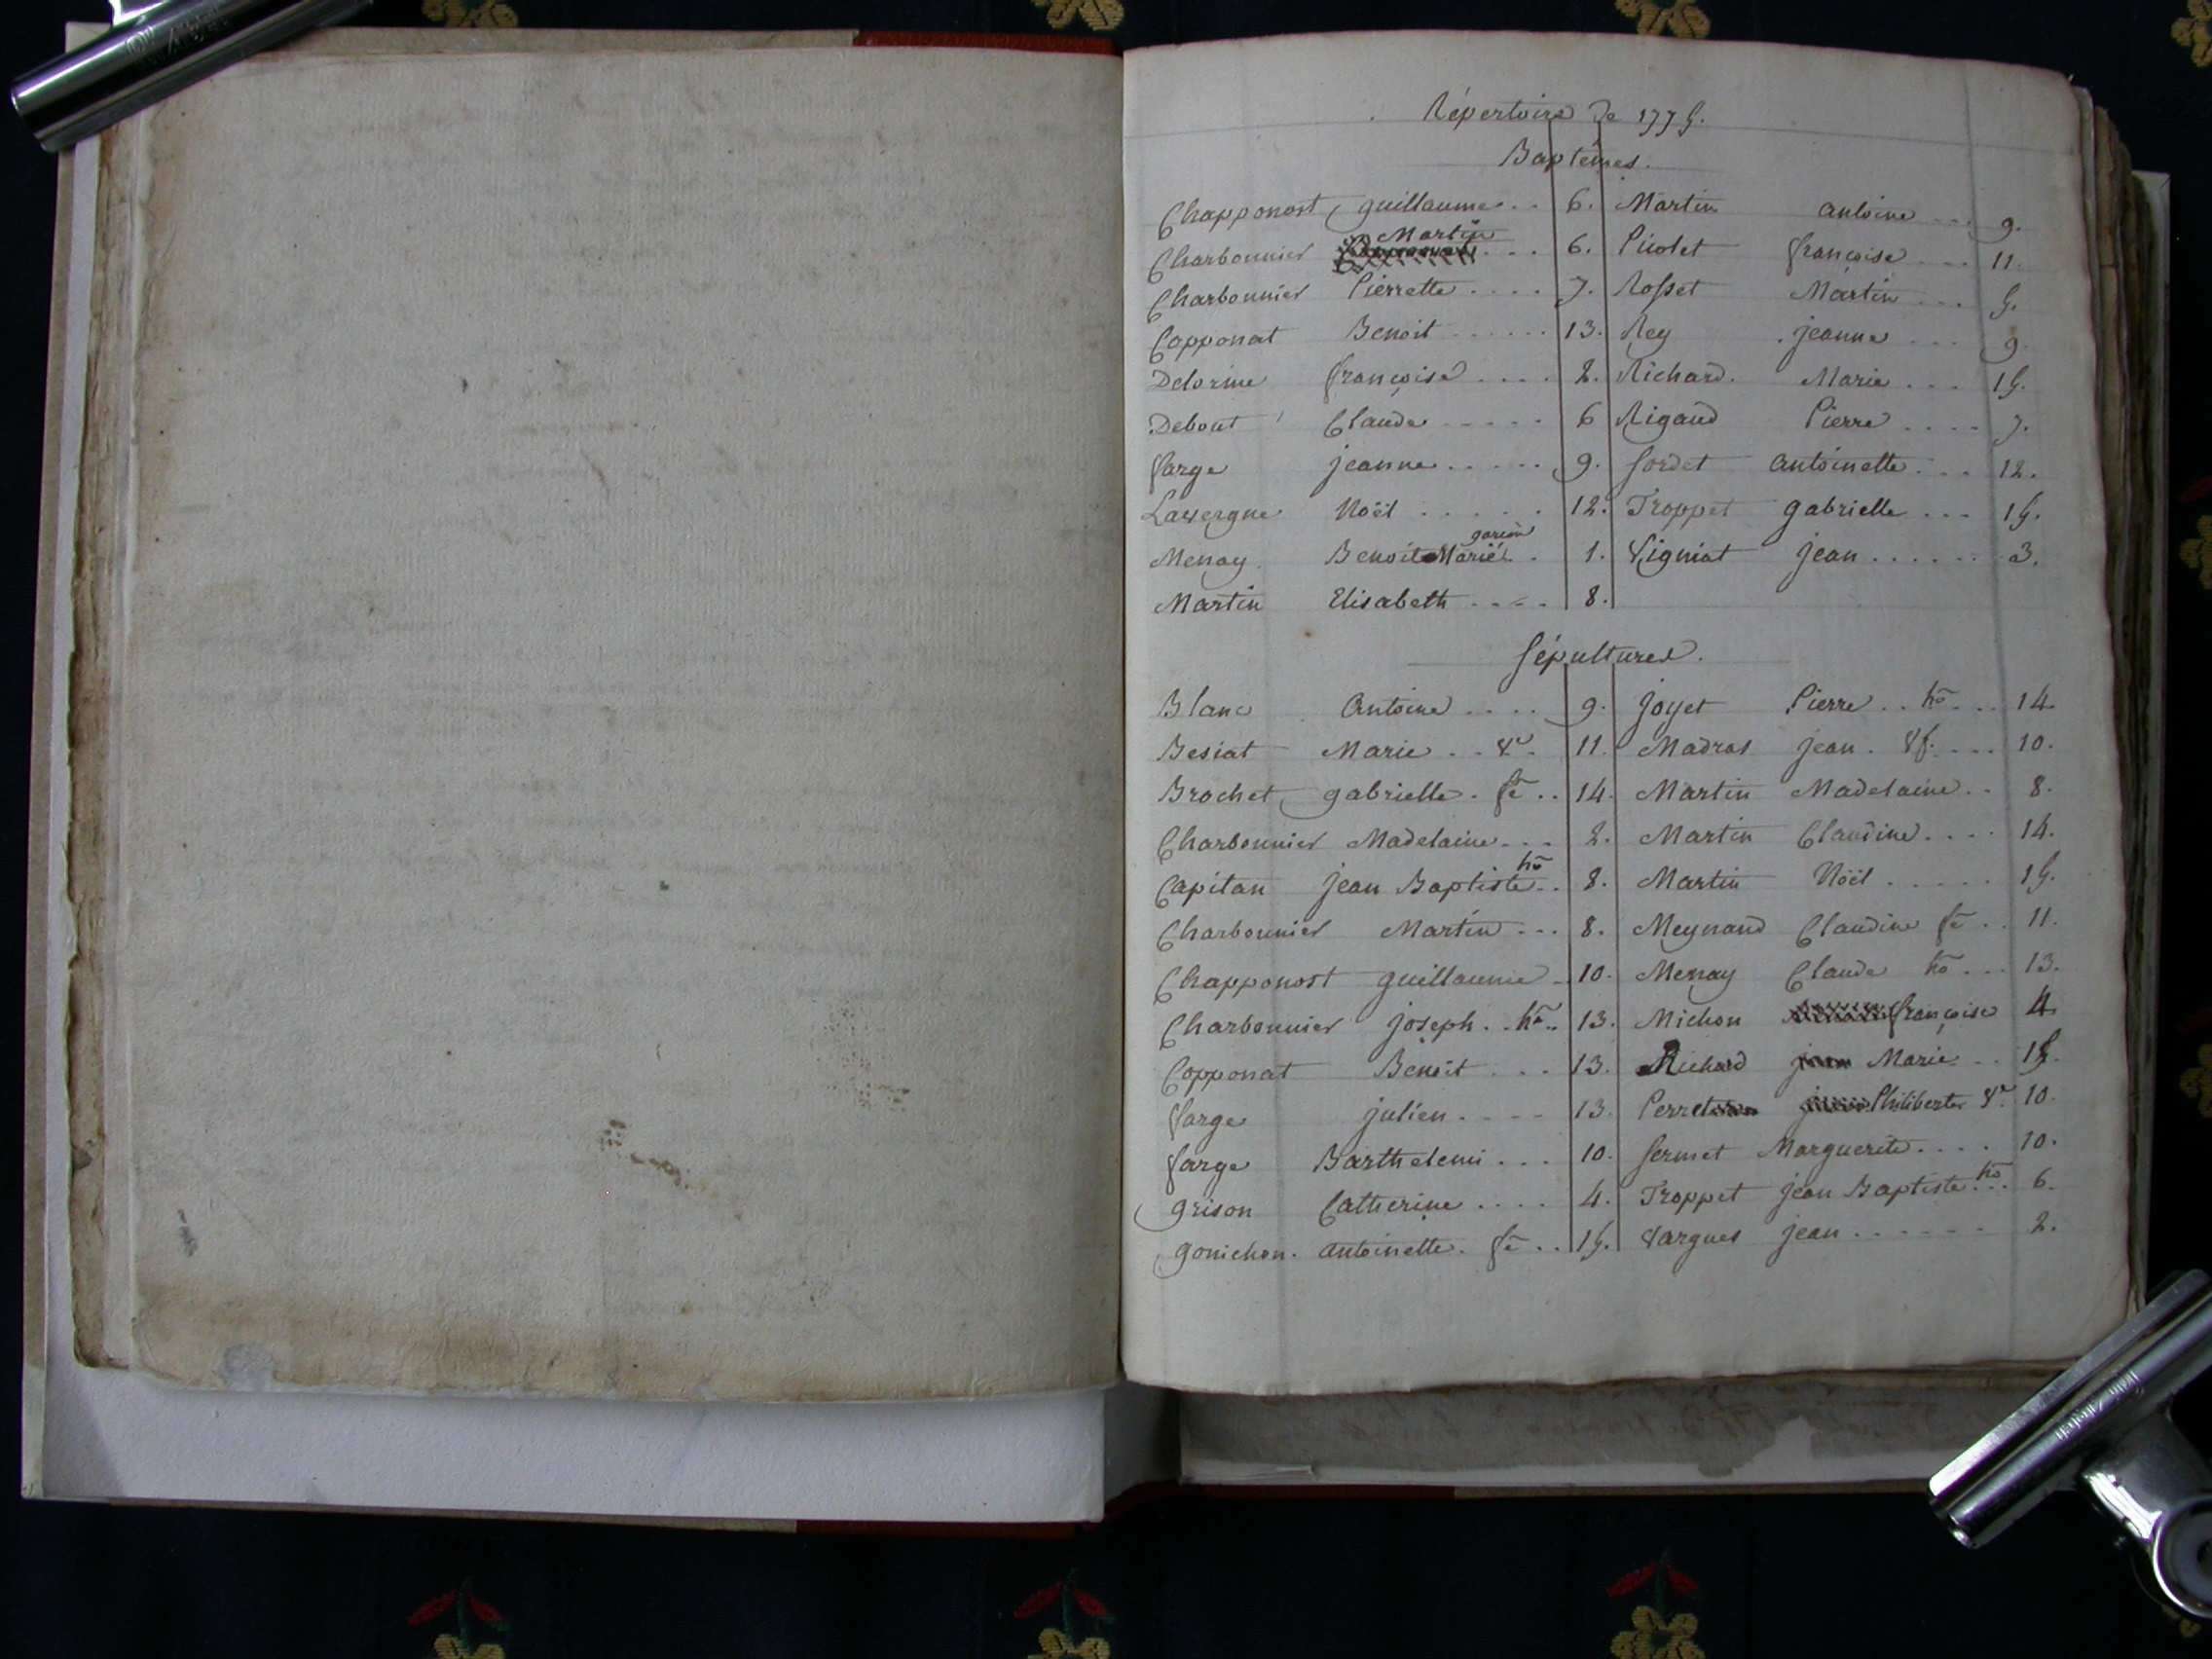 Répertoire de 1775.
Baptêmes.
Chapponost guillaume . . 6. Martin antoine . . . 9.
Charbonnier Martin . . . 6. Picolet françoise . . . 11.
Charbonnier Pierrette . . . . 7. Rosset Martin . . . 5.
Copponat Benoit . . . . . . 13. Rey jeanne . . . 9.
Delorme françoise . . . . 2. Richard. Marie . . . 15.
Debout Claude . . . . . 6 Rigaud Pierre . . . . 7.
farge jeanne . . . . . 9. Sordet antoinette . . . 12.
Lavergne Noël . . . . . 12. Troppet gabrielle . . . 15.
Menay Benoit Marie garçon . 1. Vigniat jean . . . . . . 3.
Martin Elisabeth . . . . 8.
Sépultures.
Blanc Antoine . . . . 9. joyet Pierre . . hõ . . . 14.
Besiat Marie . . Vᵉ. 11. Madras jean . Vf. . . . 10.
Brochet gabrielle . fẽ . . 14. Martin Madelaine . . 8.
Charbonnier Madelaine . . . 2. Martin Claudine . . . . 14.
Capitan jean Baptiste hõ . . 8. Martin Noël . . . . . 15.
Charbonnier Martin . . . 8. Meynand Claudine fẽ . . 11.
Chapponost guillaume . 10. Menay Claude hõ . . . 13.
Charbonnier joseph . . hõ . . 13. Michon françoise 4.
Copponat Benoit . . . 13. Richard Marie . . 15.
farge julien . . . . 13. Perret Philiberte Vᵉ. 10.
farge Barthelemi . . . 10. Sermet Marguerite . . . . 10.
grison Catherine . . . . 4. Troppet jean Baptiste hõ . . . 6.
gonichon. antoinette . fẽ . . 15. Vargues jean . . . . . . 2.